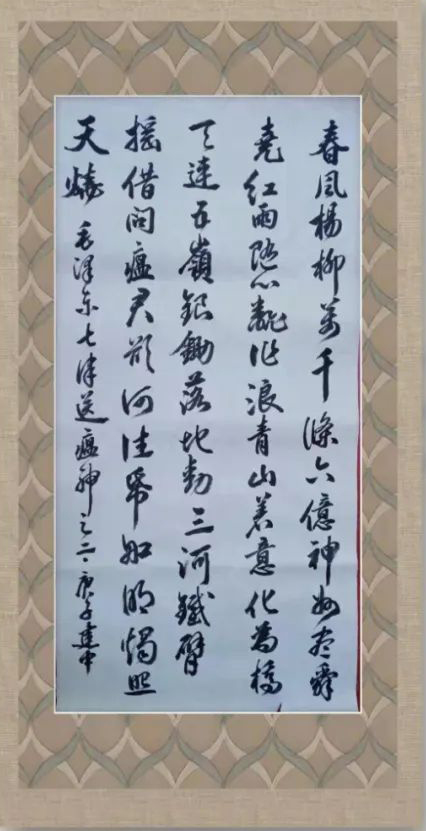 春風楊柳萬千條六億神州盡舜
堯紅雨隨心翻作浪青山着意化為橋
天連五嶺銀鋤落地動三河鐵臂
摇借問瘟君欲何往帋船明燭照
天燒 毛泽东七律送瘟神之二·庚子建中